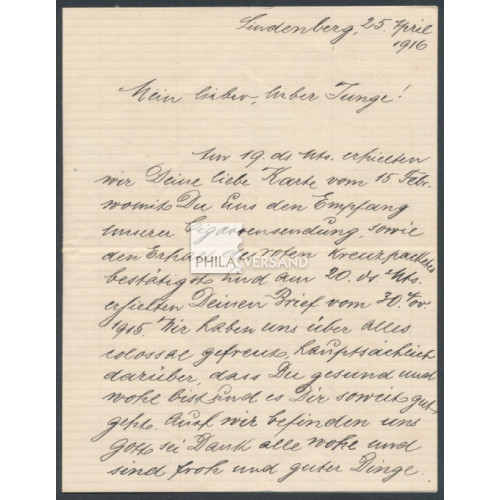 Lindenberg, 25. April
1916
Mein lieber, lieber Junge!
Am 19. ds Mts. erhielten
wir Deine liebe Karte vom 15 Febr.
womit Du uns den Empfang
unserer Cigarrensendung, sowie
den Erhalt des Roten Kreuzpacketes
PHILA VERSAND
bestätigst und am 20. ds. Mts.
erhielten Deinen Brief vom 30. Nov.
1915. Wir haben uns über alles
colossal gefreut, hauptsächlich
darüber, dass Du gesund und
wohl bist und es Dir soweit gut
geht. Auch wir befinden uns
Gott sei Dank alle wohl und
sind froh und guter Dinge.